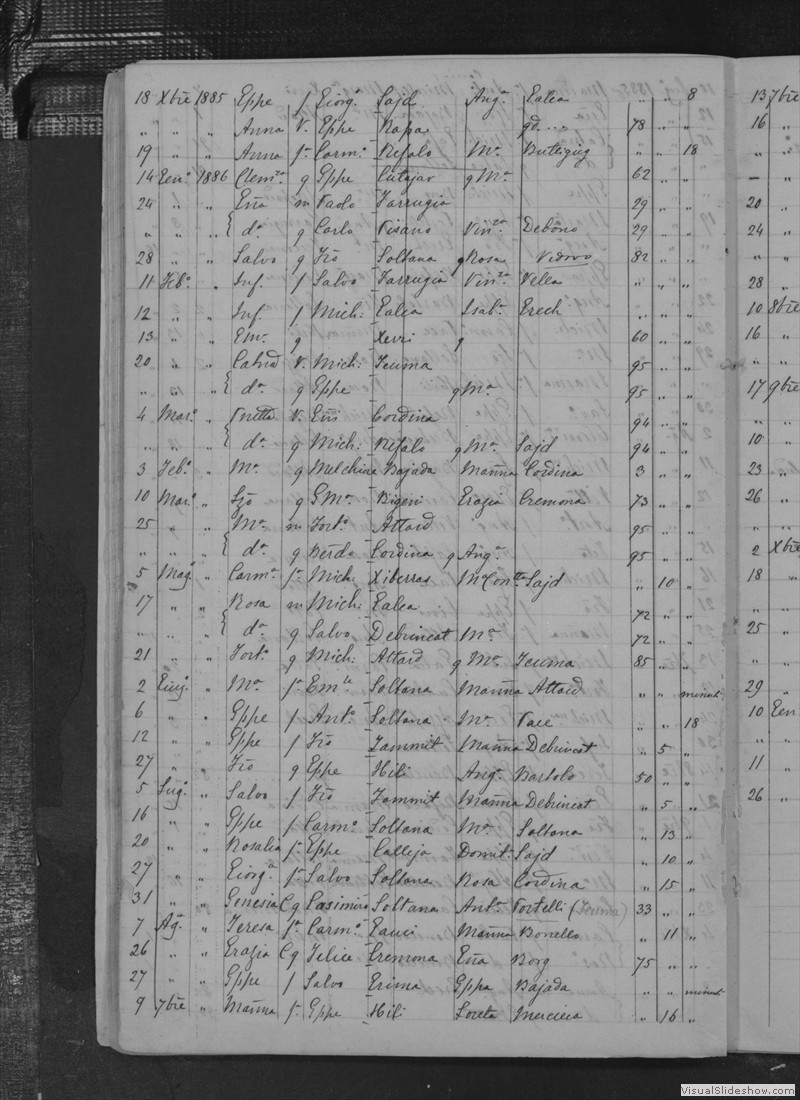 18 Xbre 1885 Gppe f Giorg.° Sajd Ang.ª Galea „ „ 8
„ „ „ Anna V. Gppe Rapa gd.... 78 „ „
19 „ „ Anna f.ª Carm.° Refalo M.ª Buttigieg „ „ 18
14 Gen.° 1886 Clem.te g Gppe Cutajar g M.ª 62 „ „
24 „ „ m Paolo Farrugia 29 „ „
„ „ „ { d.ª g Carlo Pisano Vin.za Debono 29 „ „
28 „ „ Salvo g Frō Soltana g Rosa Vedovo 82 „ „
11 Feb.° „ Inf. f Salvo Farrugia Vin.za Vella „ „
12 „ „ Inf. f Mich: Galea Isab.ª Grech „ „
13 „ „ Em.ª g Xerri g 60 „ „
20 „ „ V. Mich: Teuma 95 „ „
„ „ „ { d.ª g Gppe g M.ª 95 „ „
4 Mar.° „ V. Cordina 94 „ „
„ „ „ { d.ª g Mich: Refalo g M.ª Sajd 94 „ „
3 Feb.° „ M.ª g Melchiore Bajada Marīna Cordina 3 „ „
10 Mar.° „ g G.M.ª Bigeni Grazia Cremona 73 „ „
25 „ „ M.ª m Fort.° Attard 95 „ „
„ „ „ { d.ª g Berdo Cordina g Ang.ª 95 „ „
5 Mag.° „ Carm.ª f.ª Mich: Xiberras M.ª Con.tta Sajd „ 10 „
17 „ „ Rosa m Mich: Galea 72 „ „
„ „ „ { d.ª g Salvo Debrincat M.ª 72 „ „
21 „ „ Fort.° g Mich: Attard g M.ª Teuma 85 „ „
2 Giug.° „ M.ª f.ª Em.le Soltana Marīna Attard „ „ minuti
6 „ „ Gppe f Ant.° Soltana M.ª Pace „ „ 18
12 „ „ Gppe f Frō Zammit Marīna Debrincat „ 5 „
27 „ „ Frō g Gppe Hili Ang.ª Bartolo 50 „ „
5 Lug.° „ Salvo f Frō Zammit Marīna Debrincat „ 5 „
16 „ „ Gppe f Carm.° Soltana M.ª Soltana „ 13 „
20 „ „ Rosalia f.ª Gppe Calleja Domit.ª Sajd „ 10 „
27 „ „ Giorg.ª f.ª Salvo Soltana Rosa Cordina „ 15 „
31 „ „ Genesia C g Casimiro Soltana Ant.ª Portelli (Teuma) 33 „ „
7 Ag.° „ Teresa f.ª Carm.° Gauci Marīna Bonello „ 11 „
26 „ „ Grazia C g Felice Cremona Borg 75 „ „
27 „ „ Gppe f Salvo Grima Gppa Bajada „ „ minuti
9 7bre „ Marīna f.ª Gppe Hili Loreta Mercieca „ 16 „
13 7bre
16 „
„ „
– „
20 „
24 „
„ „
28 „
10 8bre
16 „
„ „
17 9bre
„ „
10 „
23 „
26 „
„ „
2 Xbre
18 „
„ „
25 „
„ „
29 „
10 Gen
„ „
11 „
26 „
VisualSlideshow.com